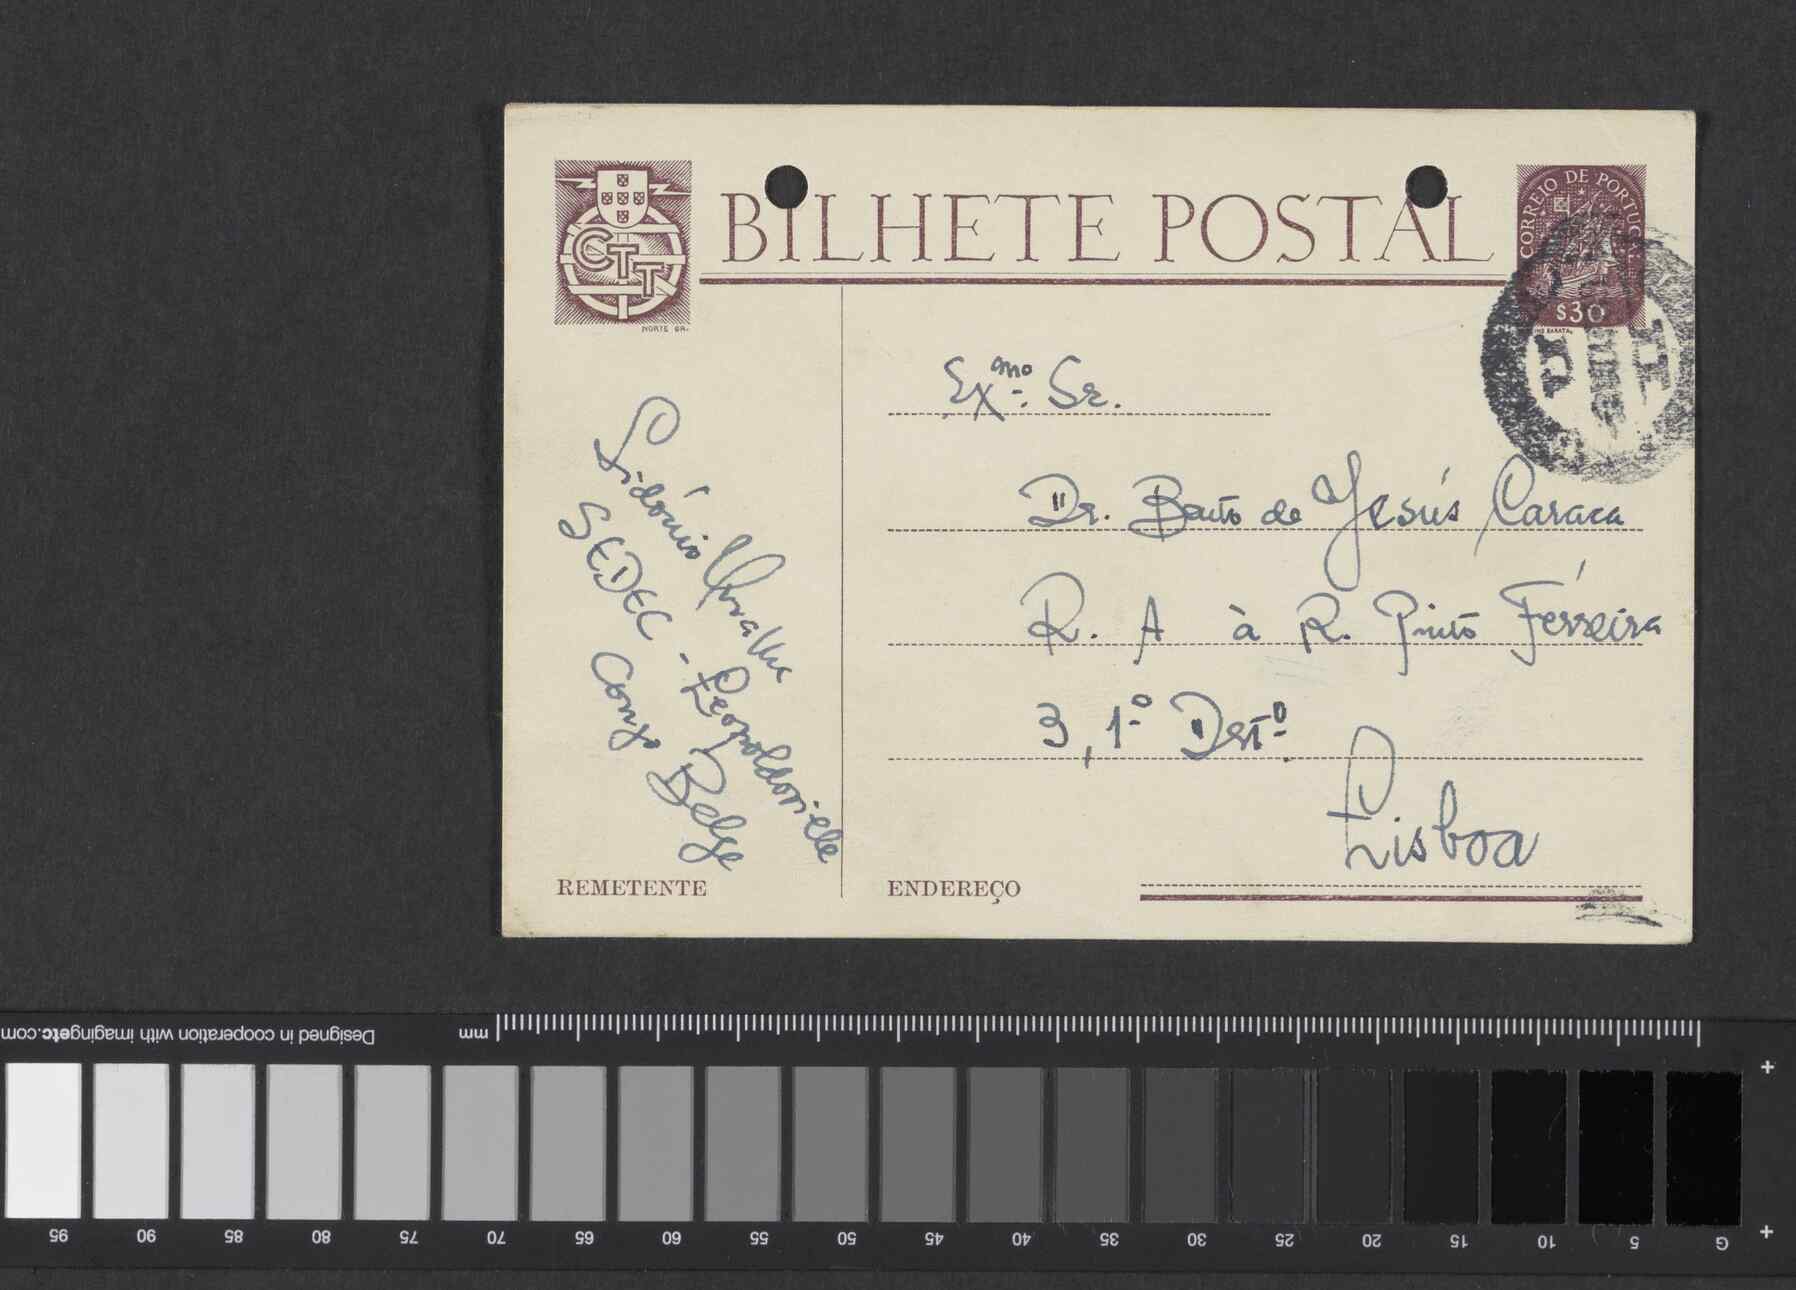 BILHETE POSTAL
CTT
NORTE GR.
CORREIO DE PORTUGAL
$30
Exmo. Sr.
Dr. Bento de Jesús Caraca
R. A à R. Pinto Ferreira
3, 1º Dstº
Lisboa
Sidónio Muralha
SEDEC - Léopoldville
Congo Belge
REMETENTE
ENDEREÇO
Designed in cooperation with imagingetc.com
mm
95 90 85 80 75 70 65 60 55 50 45 40 35 30 25 20 15 10 5 G